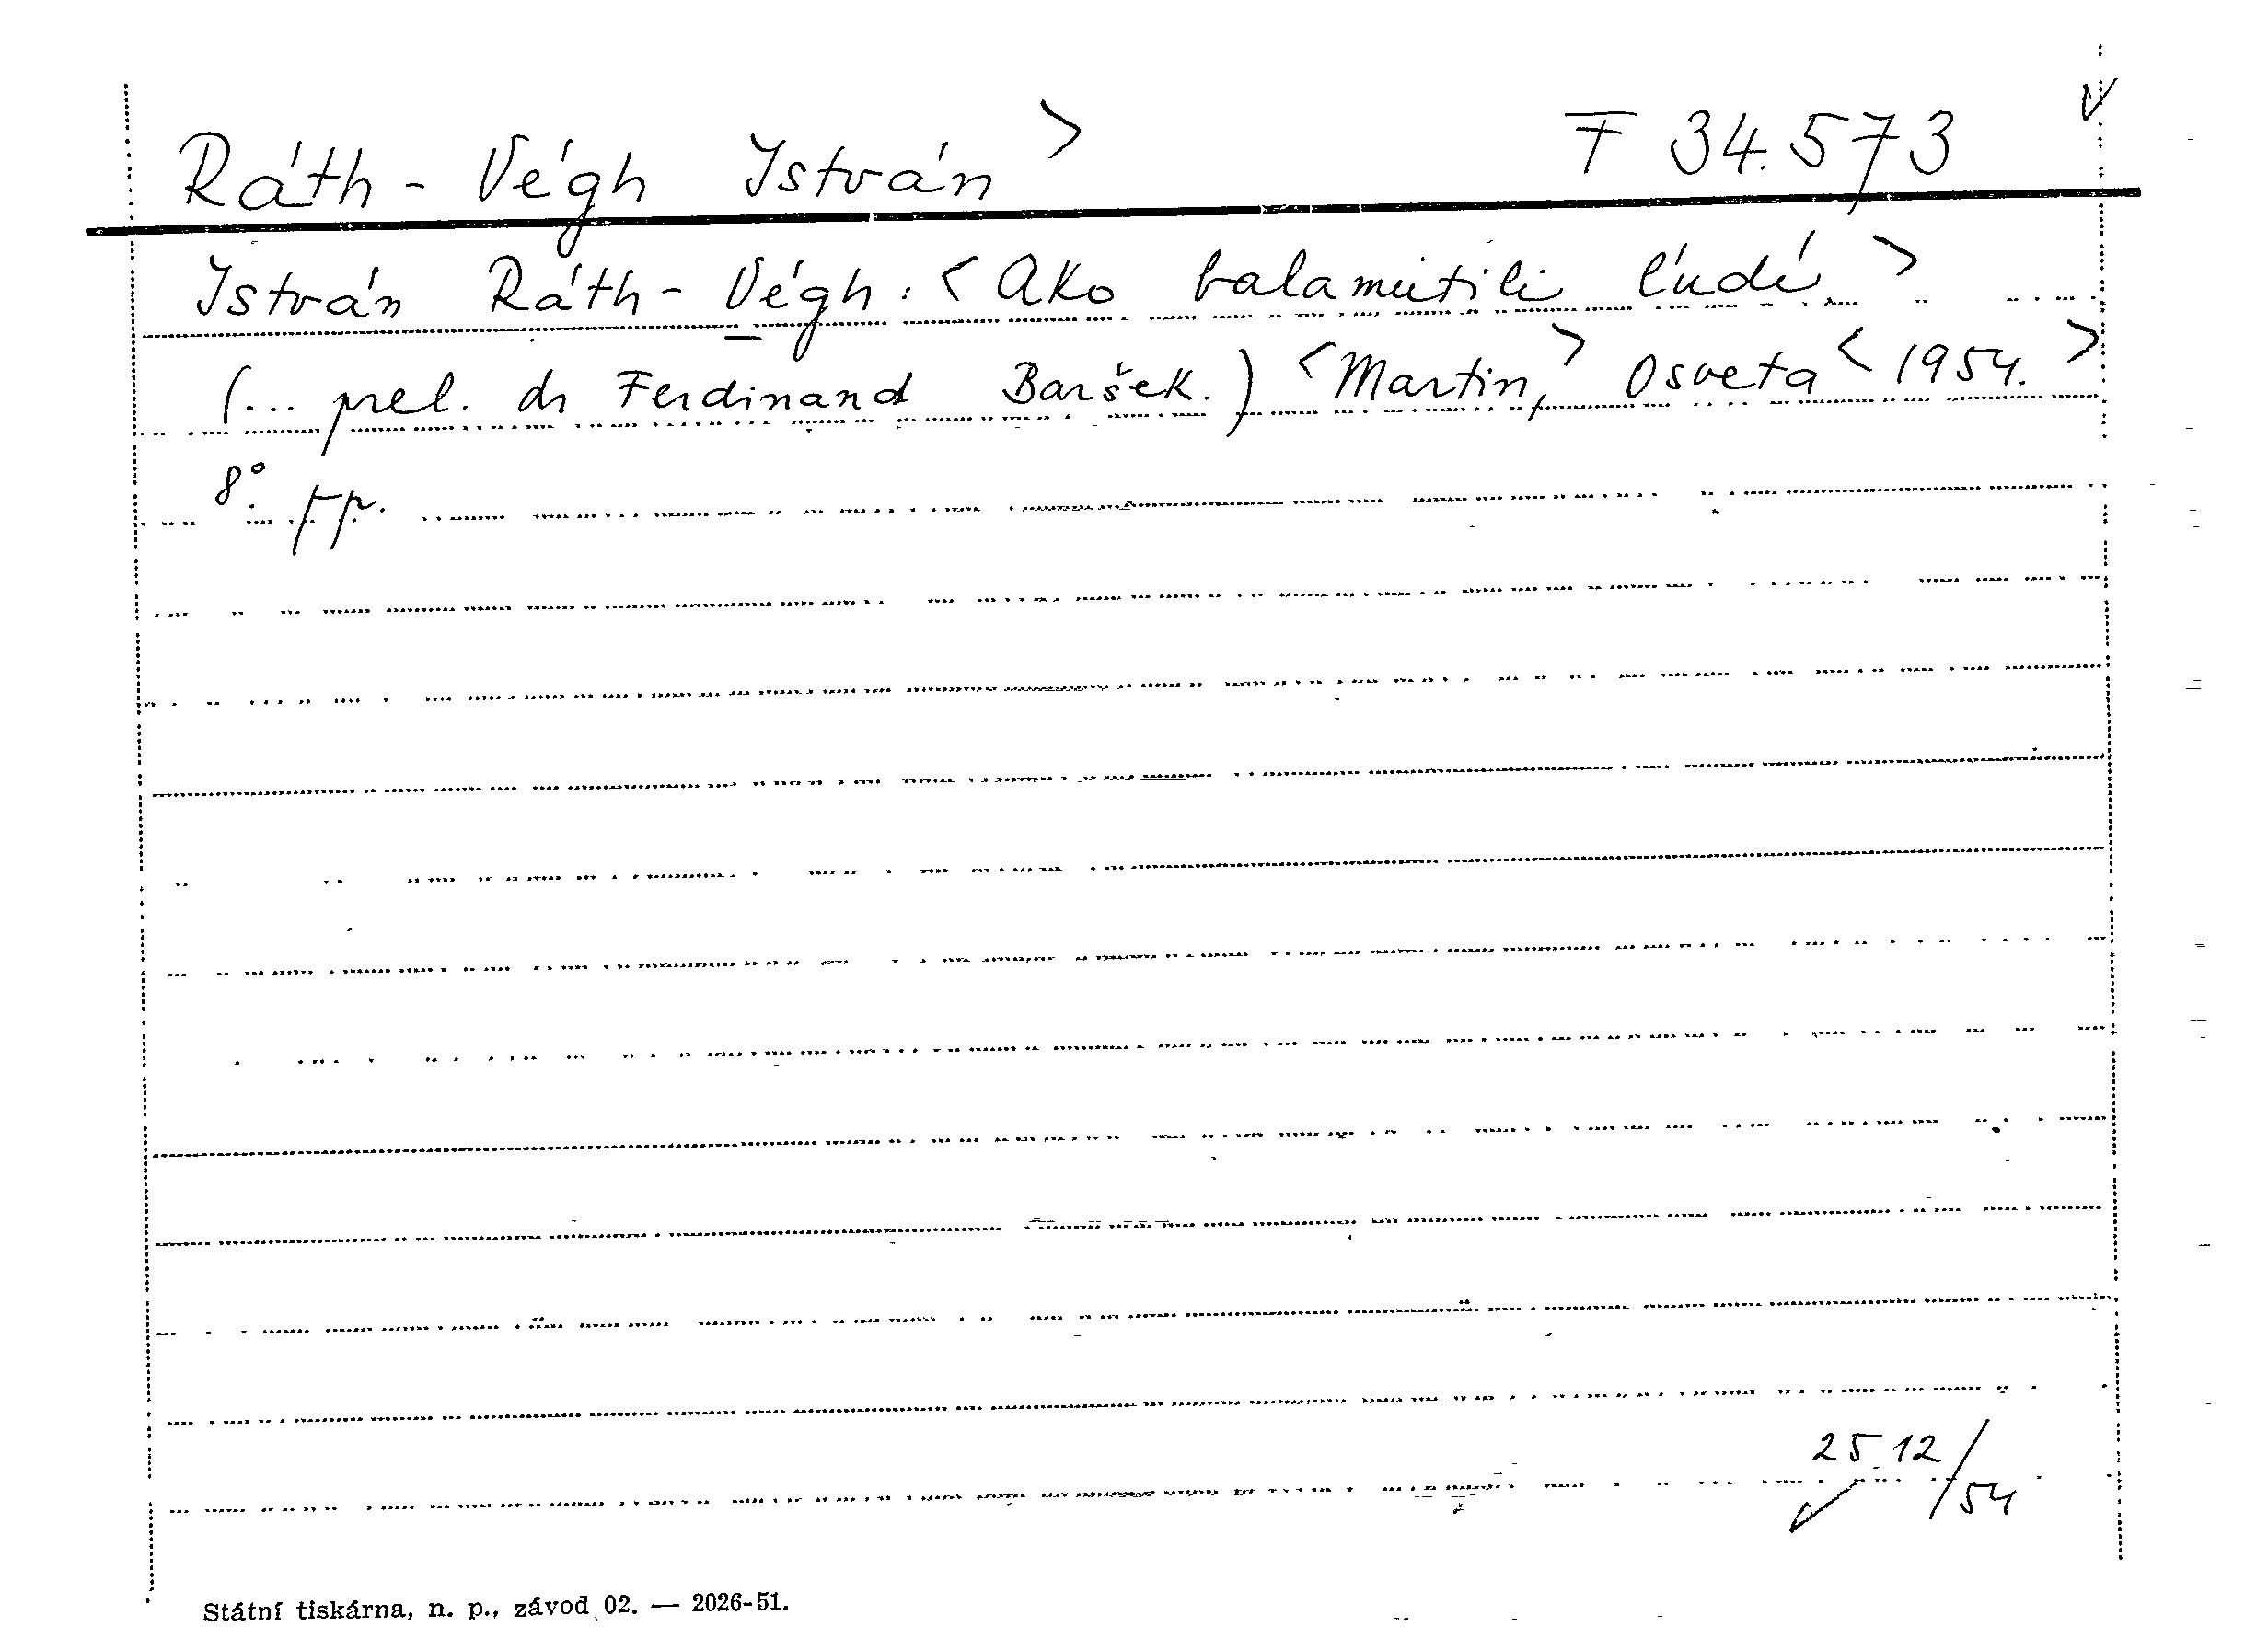 Ráth-Végh István > F 34.573
István Ráth-Végh: < Ako balamútili ľudí >
(... prel. dr Ferdinand Baršek.) < Martin, > Osveta < 1954. >
8°.
2512/54
Státní tiskárna, n. p., závod 02. — 2026-51.